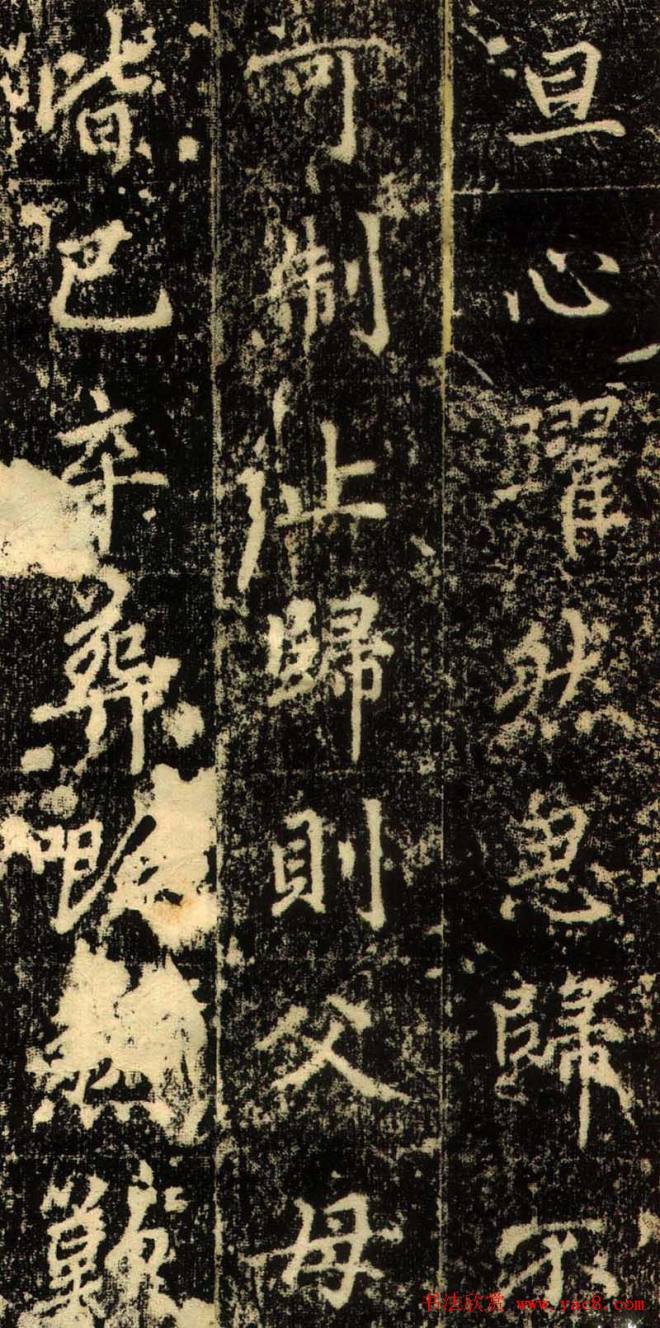 旦心躍然思歸不
可制止歸則父母
皆已卒葬難
书法欣赏 www.yac8.com